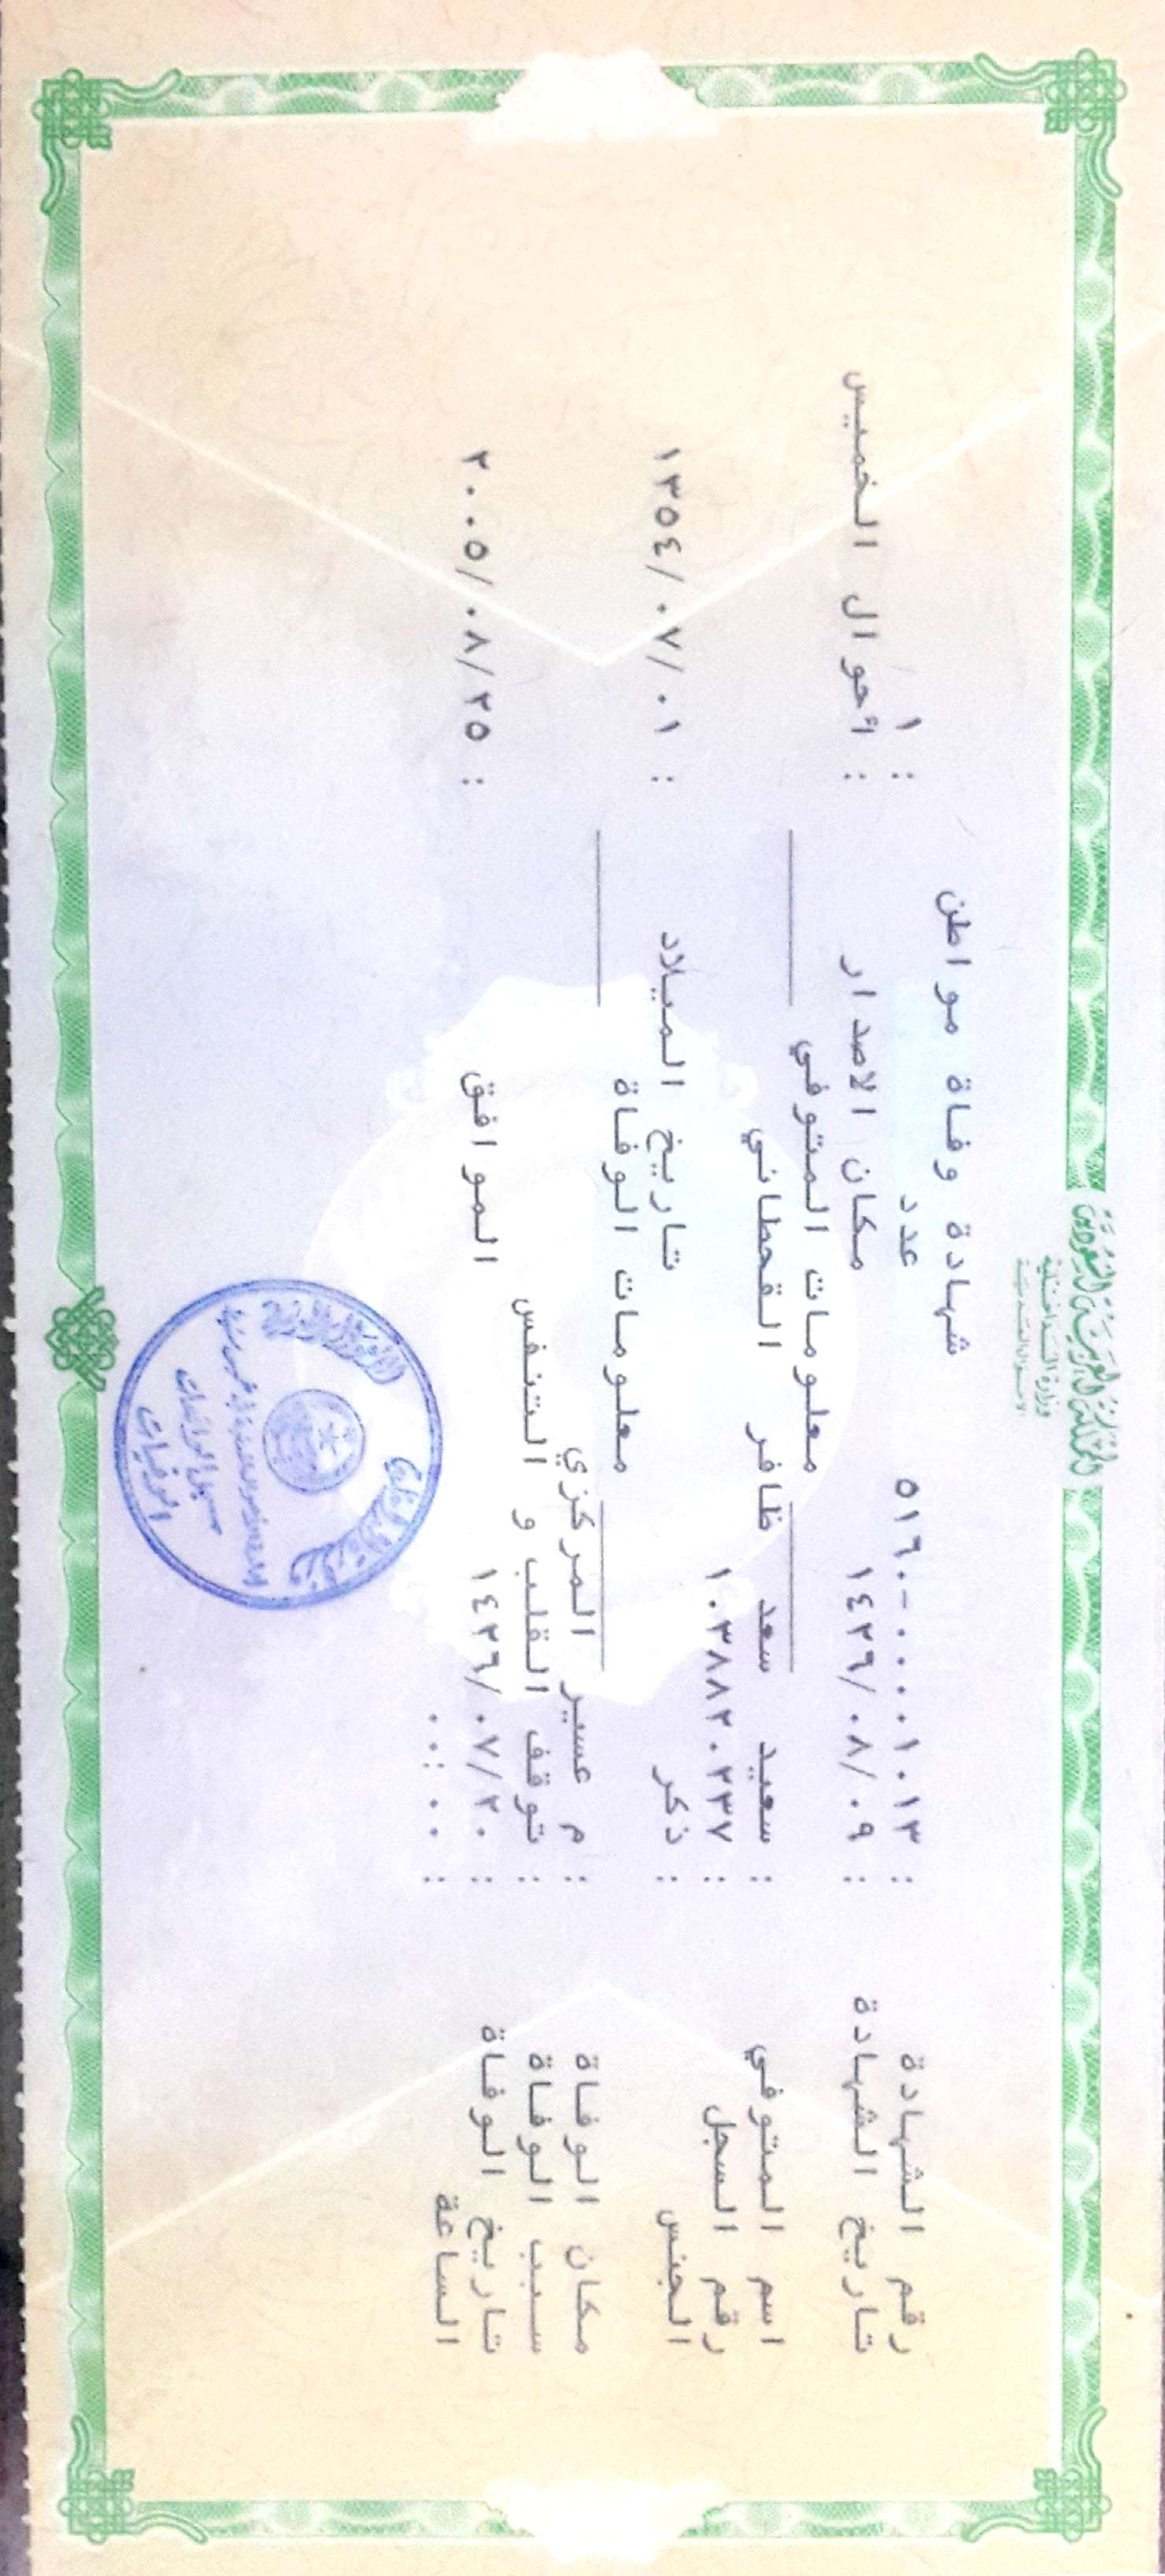 المملكة العربية السعودية
وزارة الداخلية
الأحوال المدنية
شهادة وفاة مواطن
رقم الشهادة : ٥١٦٠-٠٠٠٠١٠١٣ عدد : ١
تاريخ الشهادة : ١٤٢٩/٠٨/٠٩ مكان الاصدار : أحوال الخميس
معلومات المتوفي
اسم المتوفي : سعيد سعد ظافر القحطاني
رقم السجل : ١٠٣٨٨٢٠٢٣٧
الجنس : ذكر تاريخ الميلاد : ١٣٥٤/٠٧/٠١
معلومات الوفاة
مكان الوفاة : م عسير المركزي
سبب الوفاة : توقف القلب و التنفس
تاريخ الوفاة : ١٤٢٦/٠٧/٢٠ الموافق : ٢٠٠٥/٠٨/٢٥
الساعة : ٠٠:٠٠
وزارة الداخلية
الوفيات